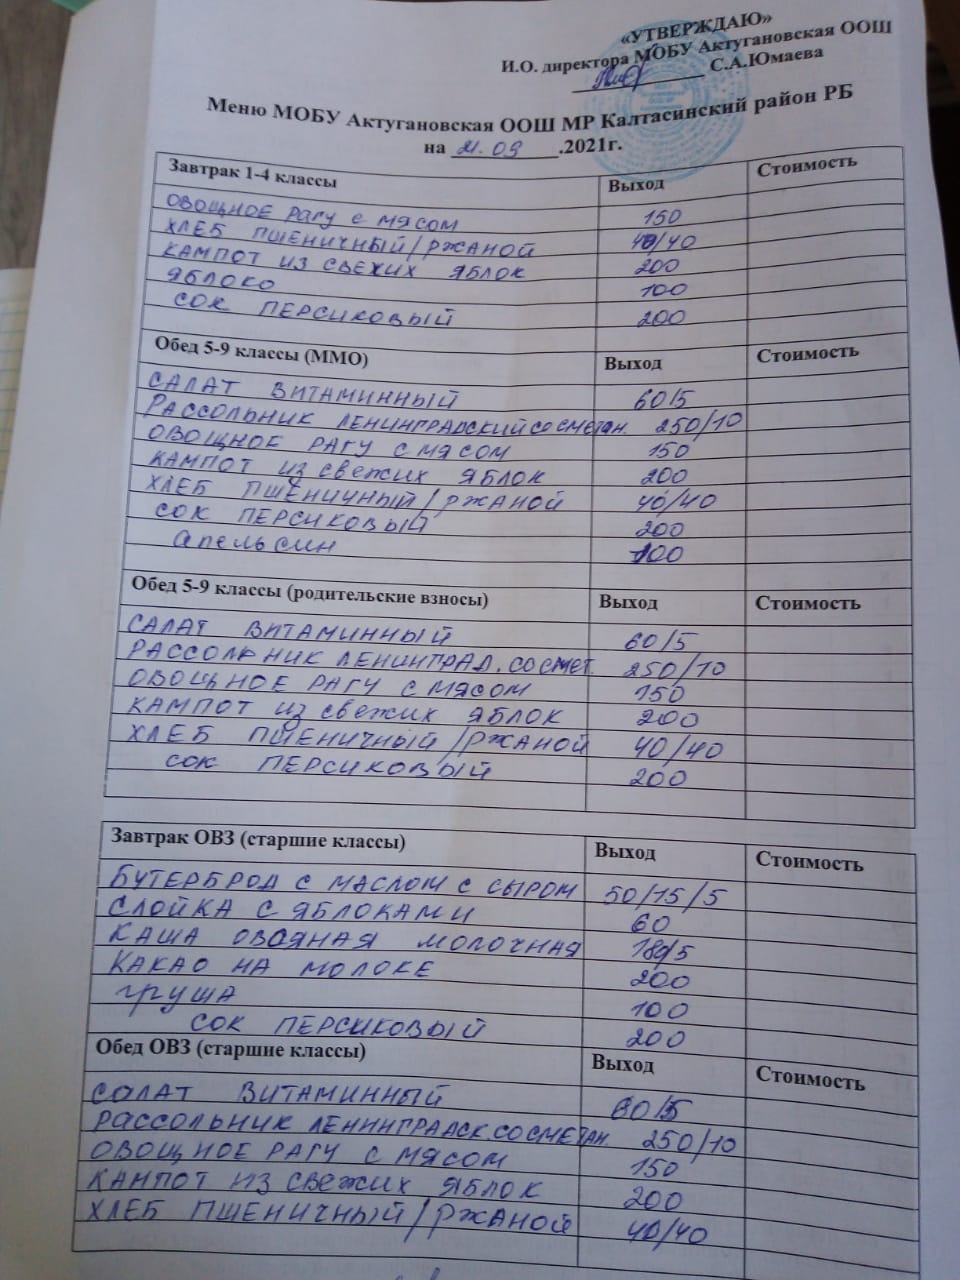 «УТВЕРЖДАЮ»
И.О. директора МОБУ Актугановская ООШ
С.А.Юмаева
Меню МОБУ Актугановская ООШ МР Калтасинский район РБ
на 21.09.2021г.
Завтрак 1-4 классы Выход Стоимость
ОВОЩНОЕ РАГУ С МЯСОМ 150
ХЛЕБ ПШЕНИЧНЫЙ/РЖАНОЙ 40/40
КАМПОТ ИЗ СВЕЖИХ ЯБЛОК 200
ЯБЛОКО 100
СОК ПЕРСИКОВЫЙ 200
Обед 5-9 классы (ММО) Выход Стоимость
САЛАТ ВИТАМИННЫЙ 60/5
РАССОЛЬНИК ЛЕНИНГРАДСКИЙ СО СМЕТАН. 250/10
ОВОЩНОЕ РАГУ С МЯСОМ 150
КАМПОТ ИЗ СВЕЖИХ ЯБЛОК 200
ХЛЕБ ПШЕНИЧНЫЙ/РЖАНОЙ 40/40
СОК ПЕРСИКОВЫЙ 200
Апельсин 100
Обед 5-9 классы (родительские взносы) Выход Стоимость
САЛАТ ВИТАМИННЫЙ 60/5
РАССОЛЬНИК ЛЕНИНГРАД. СО СМЕТ. 250/10
ОВОЩНОЕ РАГУ С МЯСОМ 150
КАМПОТ ИЗ СВЕЖИХ ЯБЛОК 200
ХЛЕБ ПШЕНИЧНЫЙ/РЖАНОЙ 40/40
СОК ПЕРСИКОВЫЙ 200
Завтрак ОВЗ (старшие классы) Выход Стоимость
БУТЕРБРОД С МАСЛОМ С СЫРОМ 50/15/5
СЛОЙКА С ЯБЛОКАМИ 60
КАША ОВСЯНАЯ МОЛОЧНАЯ 180/5
КАКАО НА МОЛОКЕ 200
груша 100
СОК ПЕРСИКОВЫЙ 200
Обед ОВЗ (старшие классы) Выход Стоимость
САЛАТ ВИТАМИННЫЙ 60/5
РАССОЛЬНИК ЛЕНИНГРАДСК. СО СМЕТАН. 250/10
ОВОЩНОЕ РАГУ С МЯСОМ 150
КАМПОТ ИЗ СВЕЖИХ ЯБЛОК 200
ХЛЕБ ПШЕНИЧНЫЙ/РЖАНОЙ 40/40